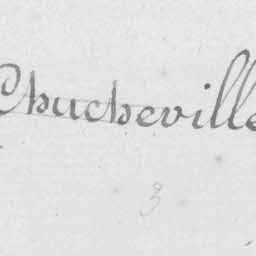 Chucheville
3